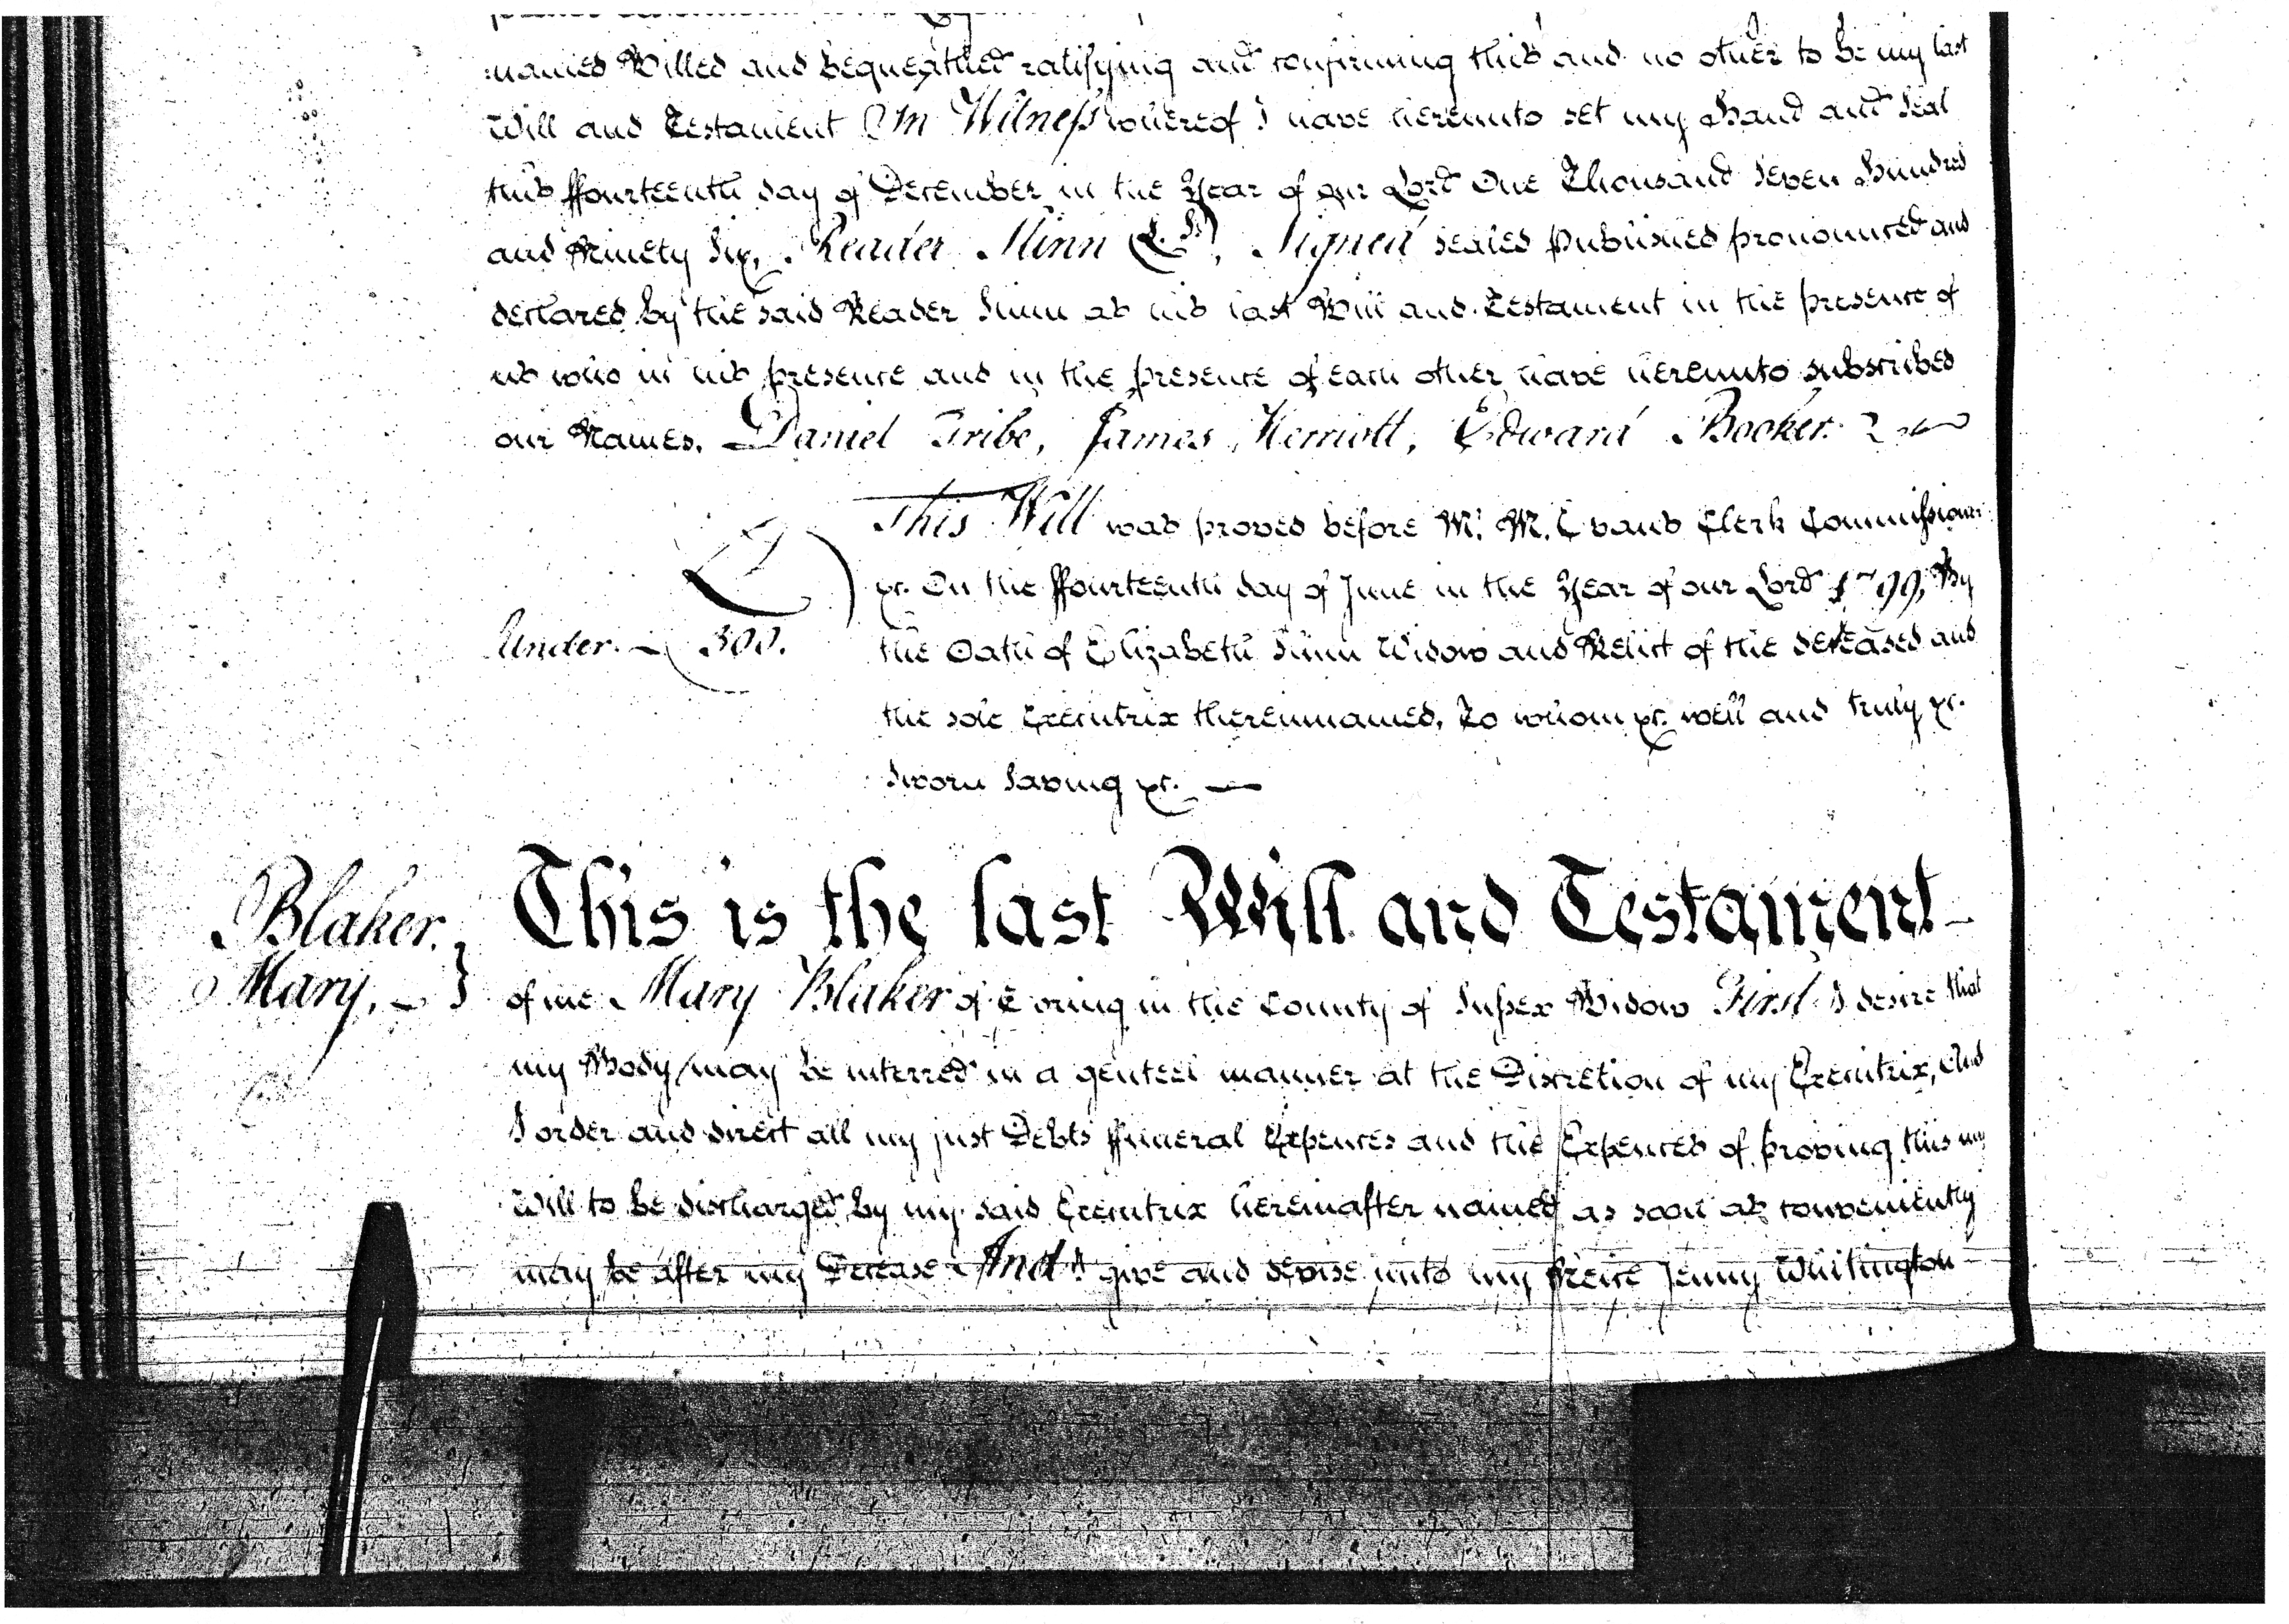 named Willed and bequeathed ratifying and confirming this and no other to be my last
Will and Testament In Witness whereof I have hereunto set my Hand and Seal
this ffourteenth day of December in the Year of our Lord One Thousand Seven Hundred
and Ninety Six, Reader Sinn (L.S.), Signed sealed published pronounced and
declared by the said Reader Sinn as his last Will and Testament in the presence of
us who in his presence and in the presence of each other have hereunto subscribed
our Names. Daniel Tribe, James Herriott, Edward Booker.
This Will was proved before Mr. M. Evans Clerk Commissioner
&c. On the ffourteenth day of June in the Year of our Lord 1799, By
Under. 300.
the Oath of Elizabeth Sinn Widow and Relict of the deceased and
the sole Executrix thereinnamed, To whom &c. well and truly &c.
Sworn Saving &c.
Blaker. Mary. }
This is the last Will and Testament
of me Mary Blaker of Goring in the County of Sussex Widow First I desire that
my Body may be interred in a genteel manner at the Discretion of my Executrix, And
I order and direct all my just Debts ffuneral Expences and the Expences of proving this my
Will to be discharged by my said Executrix hereinafter named as soon as conveniently
may be after my Decease And I give and devise unto my Neice Jenny Whitington